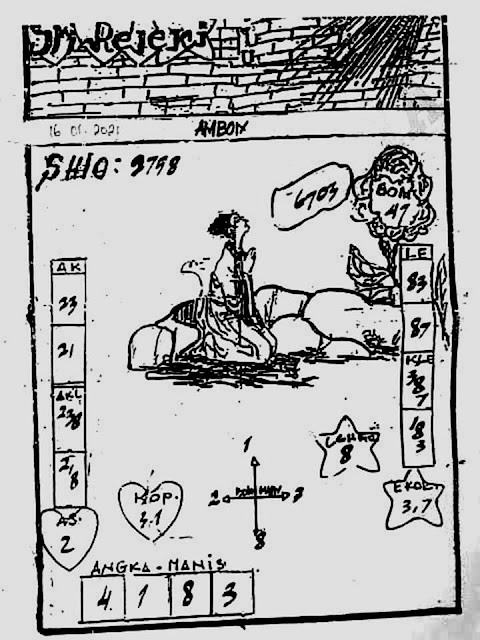 Sri Rejeki
16 01. 2021
AMBON
SHIO: 3798
6703
BOM
47
AK
23
21
AKL
23/8
21/8
AS.
2
KOP.
3.1
1
2
POLA MAIN
3
8
LE
83
87
KLE
38/7
18/3
8
EKOR
3,7
ANGKA-MANIS
4 1 8 3